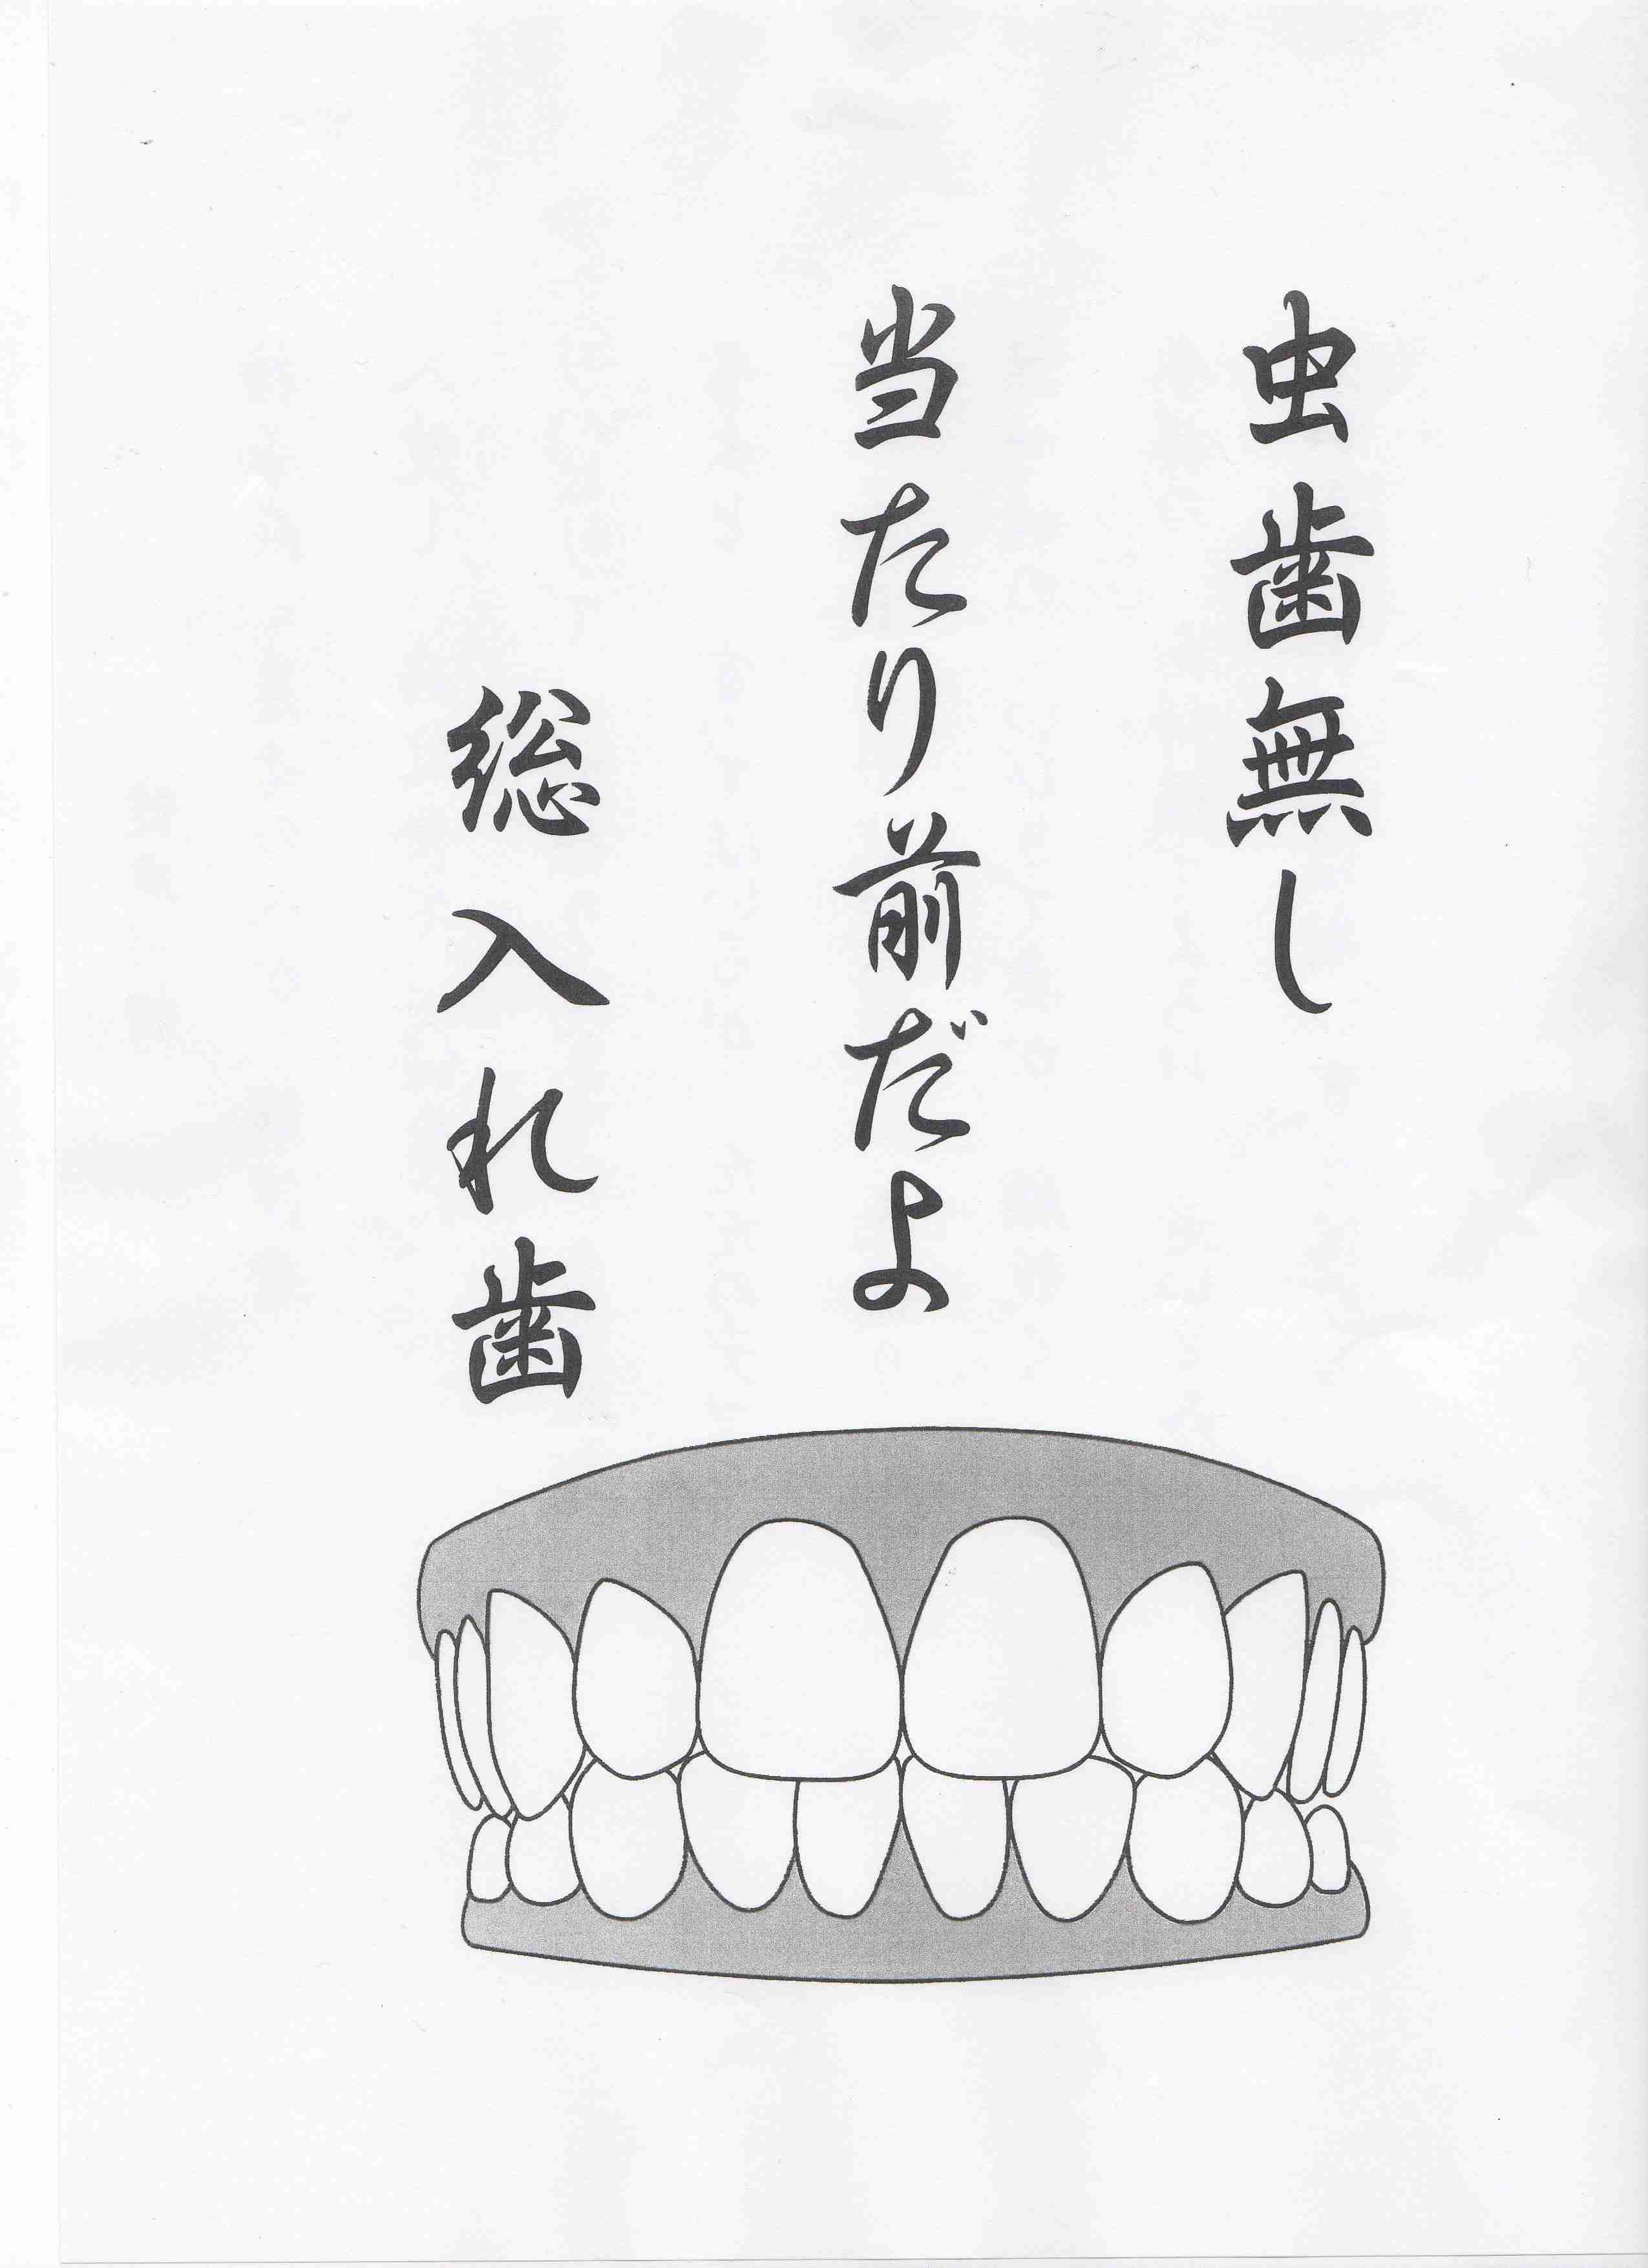 虫歯無し
当たり前だよ
総入れ歯